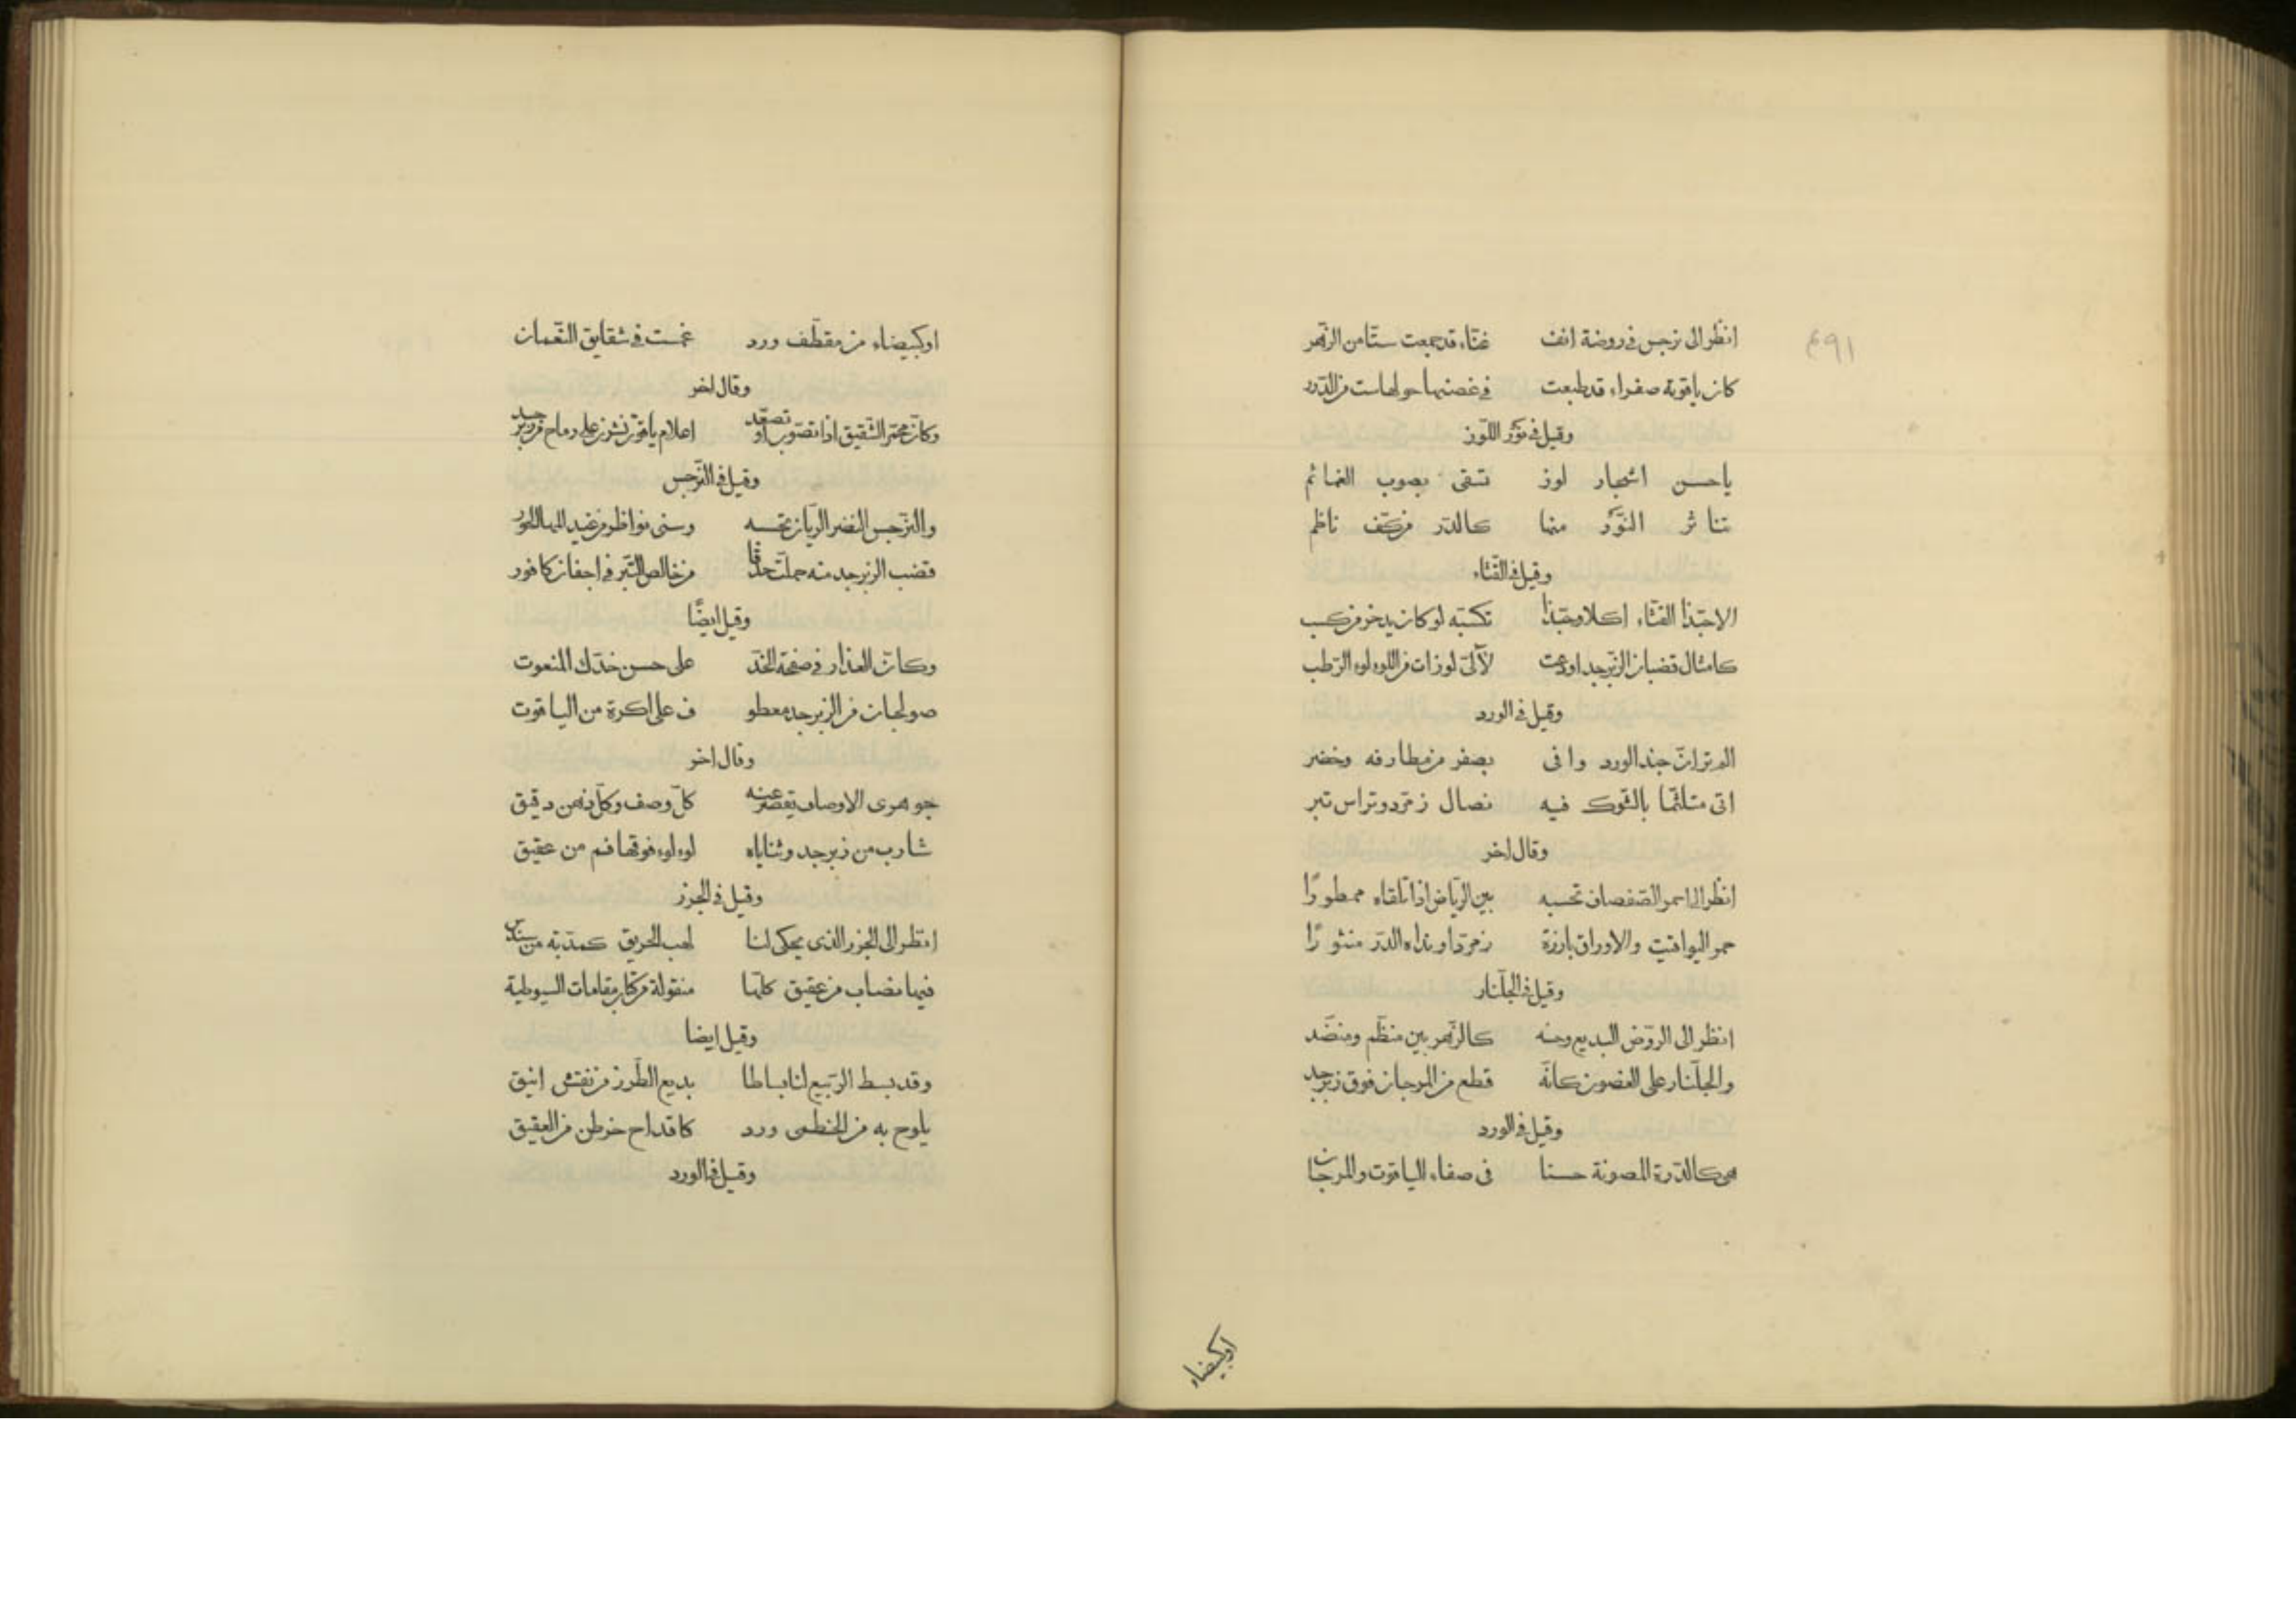 ٤٩١
انظر الى نرجس فى روضة انف غنّاء قد جمعت ستّا من الزّهر
كان ياقوتة صفراء قد طبعت فى غصنها حولها ست من الدّرر
وقيل فى نَوْر اللّوز
ياحسن اشجار لوز تسقى بصوب الغمائم
تناثر النّوْر منها كالدّر من كفّ ناظم
وقيل فى القثّاء
الاحبّذا القثّاء اكلا وحبّذا تكسّبه لو كان يدخر من كسب
كامثال قضبان الزّبرجد اودعت لآلئ لوزات من اللوءلوء الرّطب
وقيل فى الورد
الم تر انّ جند الورد وافى بصفر من مطارفه وخضر
اتى متلثّما بالشّوك فيه نصال زمرّد وتراس تبر
وقال اخر
انظر الى اسمر الصّفصاف تحسبه بين الرّياض اذا تلقاه ممطورًا
حمر اليواقيت والاوراق بارزة زمرّدا ونداه الدّر منثورًا
وقيل فى الجلّنار
انظر الى الرّوض البديع وحسنه كالزّهر بين منظّم ومنضّد
والجلّنار على الغصون كانّه قطع من المرجان فوق زبرجد
وقيل فى الورد
هى كالدّرة المصونة حسنا فى صفاء الياقوت والمرجان
اوكبيضاء
اوكبيضاء من مقطّف ورد غمست فى شقايق النّعمان
وقال اخر
وكان محمّر الشّقيق اذا تصوّب او تصعّد اعلام ياقوت نشرن على رماح من زبرجد
وقيل فى النّرجس
والنّرجس النضر الرّيان تحسبه وسنى نواظر من غيد المها الحور
قضب الزبرجد منه حملت حدقا من خالص التّبر فى اجفان كافور
وقيل ايضًا
وكانّ العذار فى صفحة الخدّ على حسن خدّك المنعوت
صولجان من الزبرجد معطو ف على اكرة من الياقوت
وقال اخر
جوهرى الاوصاف يقصر عنه كلّ وصف وكلّ ذهن دقيق
شارب من زبرجد وثناياه لوءلوء فوقها فم من عقيق
وقيل فى الجزر
انظر الى الجزر الذى يحكى لنا لهب الحريق كمدّبه من سندس
فيها نصاب من عقيق كلّها منقولة من كتاب مقامات السيوطية
وقيل ايضا
وقد بسط الرّبيع لنا بساطا بديع الطّرز من نقش انيق
يلوح به من الخطمى ورد كاقداح خرطن من العقيق
وقيل فى الورد